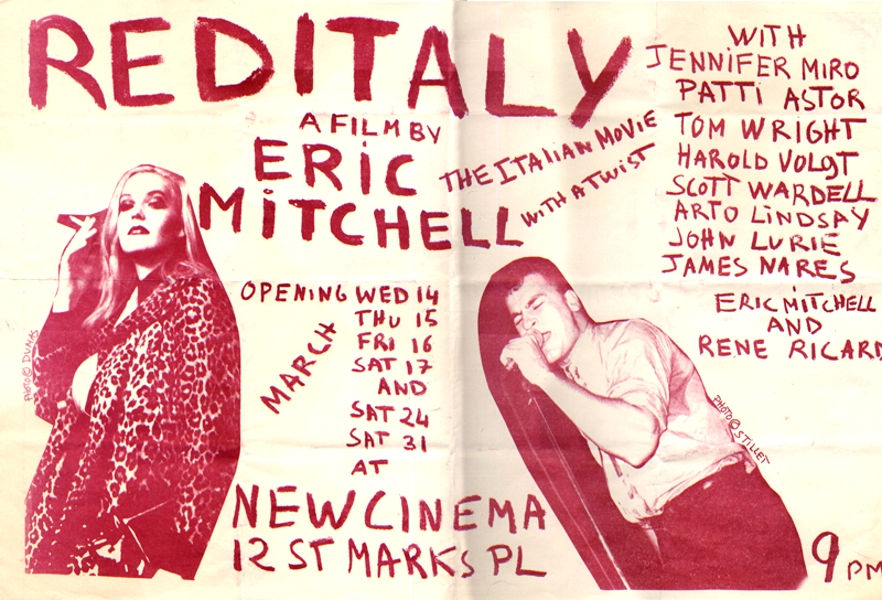 REDITALY
A FILM BY
ERIC
MITCHELL
THE ITALIAN MOVIE
WITH A TWIST
WITH
JENNIFER MIRO
PATTI ASTOR
TOM WRIGHT
HAROLD VOLGT
SCOTT WARDELL
ARTO LINDSAY
JOHN LURIE
JAMES NARES
ERIC MITCHELL
AND
RENE RICARD
OPENING WED 14
THU 15
FRI 16
SAT 17
AND
SAT 24
SAT 31
MARCH
AT
NEW CINEMA
12 ST MARKS PL
9 PM
PHOTO © DUMAS
PHOTO © STILLET